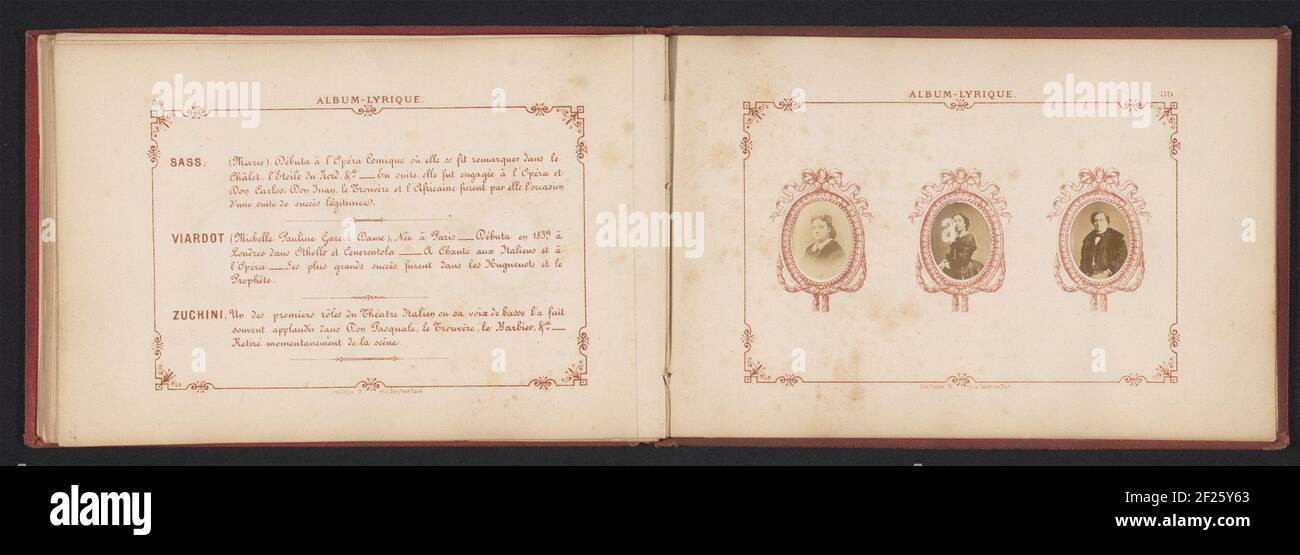 ALBUM-LYRIQUE.
SASS. (Marie). Débuta à l'Opéra Comique où elle se fit remarquer dans le
Châlet, l'Etoile du Nord, &ª — En suite, elle fut engagée à l'Opéra et
Don Carlos, Don Juan, le Trouvère et l'Africaine furent par elle l'occasion
d'une suite de succès légitimes.
VIARDOT (Michelle Pauline Garcia Dame), Née à Paris — Débuta en 1839 à
Londres dans Othello et Cenerentola — A Chanté aux Italiens et à
l'Opéra — Ses plus grands succès furent dans les Huguenots et le
Prophète.
ZUCHINI, Un des premiers rôles du Théatre Italien ou sa voix de basse l'a fait
souvent applaudir dans Don Pasquale, le Trouvère, le Barbier, &ª —
Retiré momentanement de la scène.
16
ALBUM-LYRIQUE.
39
alamy
alamy
Image ID: 2F25Y63
www.alamy.com